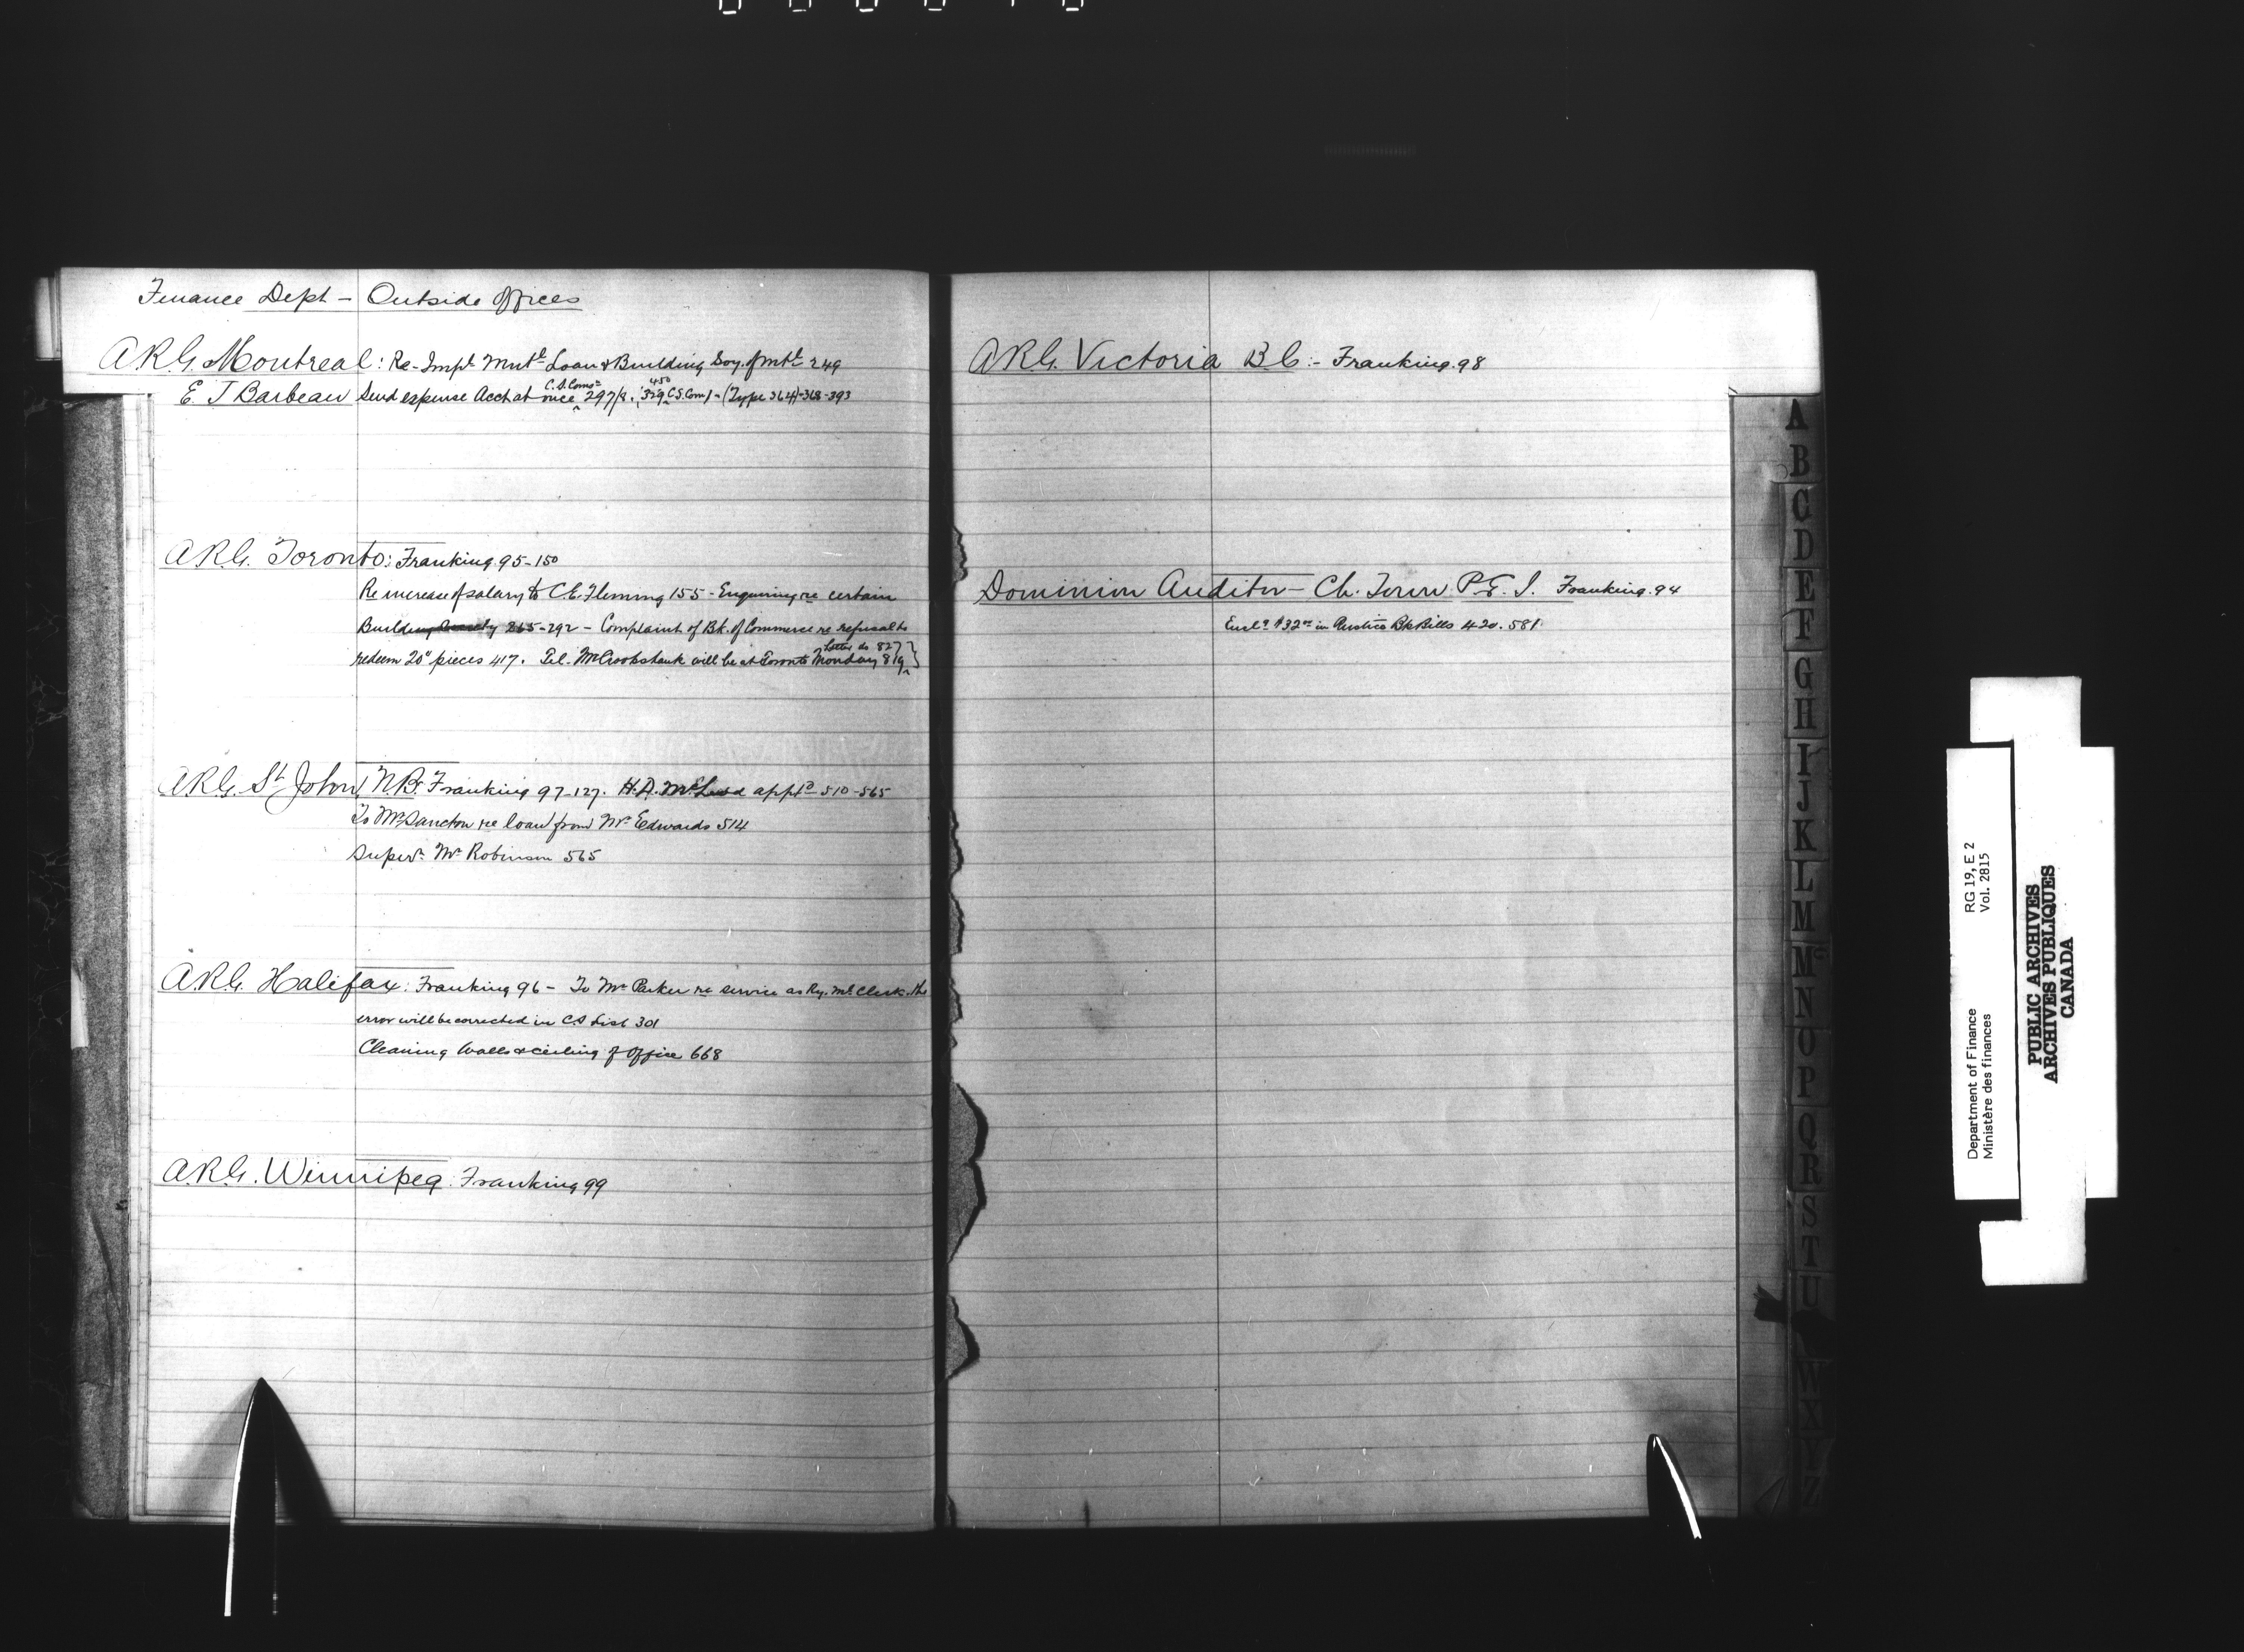 Finance Dept - Outside Offices
A.R.G. Montreal: Re-Impl Mutl Loan & Building Soy. of Mtl 249
E. J Barbeau Send expense Acct at once C.S. Comn 297/8. 329 450 C.S. Com) - (Type 364)-368-393
A.R.G. Toronto: Franking 95-150
Re increase of salary to C.E. Fleming 155 - Enquiring re certain
Building Society 265-292 - Complaint of Bk. of Commerce re refusal to
redeem 20c pieces 417. Tel. Mr Crookshank will be at Toronto Monday 819 Letter do 827
A.R.G. St John, N.B. Franking 97-127. H.D. McLeod apptd 510-565
To Mr Sancton re loan from Mr Edwards 514
Superr. Mr Robinson 565
A.R.G. Halifax: Franking 96 - To Mr Parker re service as Ry. Ml. Clerk. the
error will be corrected in C.S List 301
Cleaning Walls & ceiling of Office 668
A.R.G. Winnipeg: Franking 99
A.R.G. Victoria B.C:- Franking. 98
Dominion Auditor - Ch. Town P.E.I. Franking. 94
Encl. $32 in Rustico Bk Bills 420. 581
A
B
C
D
E
F
G
H
I
J
K
L
M
Mc
N
O
P
Q
R
S
T
U
W
X
Y
Z
Department of Finance
Ministère des finances
RG 19, E 2
Vol. 2815
PUBLIC ARCHIVES
ARCHIVES PUBLIQUES
CANADA